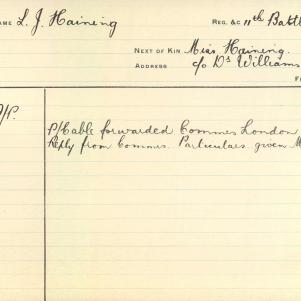 NAME L. J. Haining REG. &C 11th Battl
NEXT OF KIN Miss Haining.
ADDRESS c/o Dr Williams
P/Cable forwarded Commes London
Reply from Commes. Particulars given M